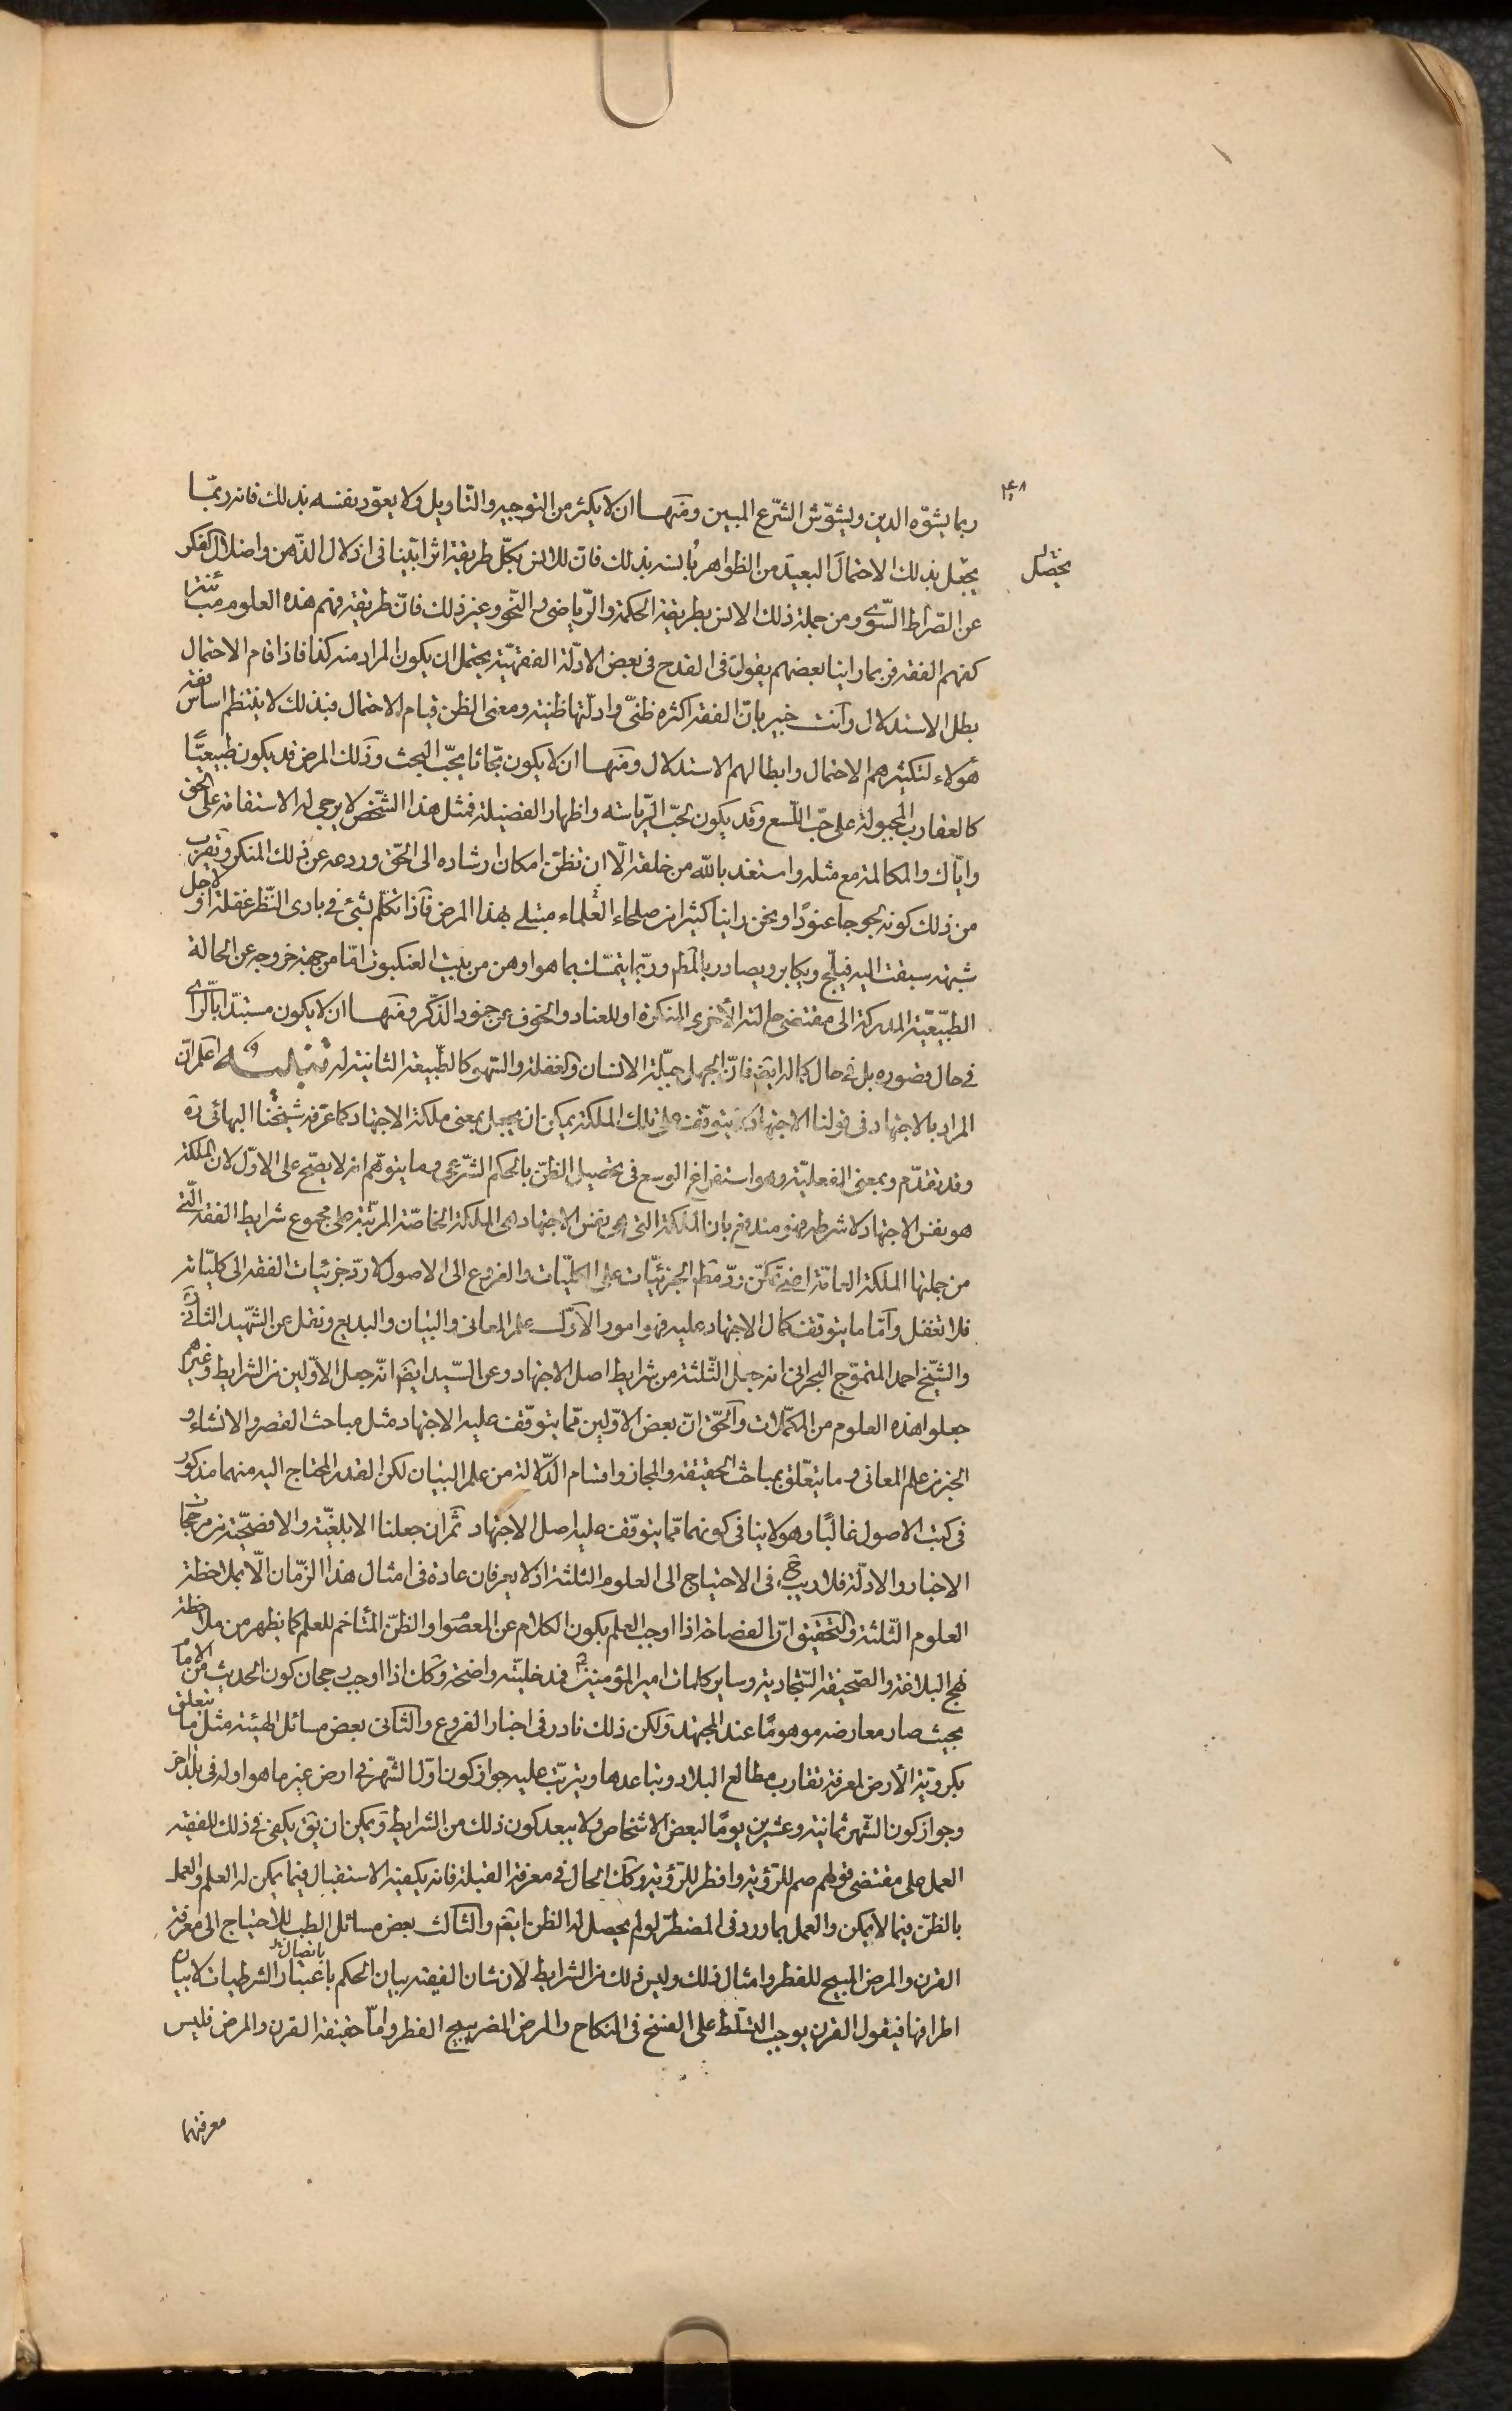 ۴۴۸
ربما يشوّه الدين ويشوّش الشّرع المبين ومنها ان لا يكثر من التوجيه والتّاويل ولا يعوّد نفسه بذلك فانه ربّما
يحصل له
يجعل بذلك الاحتمال البعيد من الظواهر بانسه بذلك فان للانس بكل طريقة اثرا بيّنا فى اذلال الذّهن واضلال الفكر
عن الصّراط السّوى ومن جملة ذلك الانس بطريقة الحكمة والرّياضى والنّحو وغير ذلك فانّ طريقة فهم هذه العلوم مباينة
كفهم الفقه فربما راينا بعضهم يقول فى القدح فى بعض الادلّة الفقهيّة يحتمل ان يكون المراد منه كذا فاذا قام الاحتمال
بطل الاستدلال وانت خبير بانّ الفقه اكثره ظنىّ وادلّتها ظنية ومعنى الظن قيام الاحتمال فبذلك لا ينتظم اساس فقه
هؤلاء لتكثيرهم الاحتمال وابطالهم الاستدلال ومنها ان لا يكون بحّاثا يحبّ البحث وذلك المرض قد يكون طبيعيًّا
كالعقارب المجبولة على حبّ اللّسع وقد يكون لحبّ الرّياسة واظهار الفضيلة فمثل هذا الشّخص لا يرجى له الاستقامة على الحق
وايّاك والمكالمة مع مثله واستعذ بالله من خلقه الّا ان تظنّ امكان ارشاده الى الحّق وردعه عن ذلك المنكر ويقرب
من ذلك كونه لجوجا عنودًا ونحن راينا كثيرا من صلحاء العلماء مبتلى بهذا المرض فاذا تكلّم بشئ فى بادى النّظر غفلة او لاجل
شبهة سبقت اليه فيلجّ ويكابر ويصادر بالمطم وربّما يتمسّك بما هو اوهن من بيت العنكبوت امّا من جهة خروجه عن الحالة
الطبّيعيّة المدركة الى مقتضى حالته الأخرى المنكرة او للعناد والخوف عن جمود الذّكر ومنها ان لا يكون مستبدّا بالرّاى
فى حال قصوره بل فى حال كماله ايضا فانّ الجهل جبلّة الانسان والغفلة والسّهو كالطّبيعة الثانية له تنبيه اعلم انّ
المراد بالاجتهاد فى قولنا الاجتهاد يتوقّف على تلك الملكة يمكن ان يجعل بمعنى ملكة الاجتهاد كما عرّفه شيخنا البهائى ره
وقد تقدّم وبمعنى الفعليّة وهو استفراغ الوسع فى تحصيل الظنّ بالحكم الشّرعى وما يتوهّم انه لا يصّح على الاوّل لان الملكة
هو نفس الاجتهاد لا شرطه فهو مندفع بان الملكة التى هى نفس الاجتهاد هى الملكة الخاصّة المرتّبة على مجموع شرايط الفقه الّتى
من جملتها الملكة العامّة اعنى تمكّن ردّ مطلق الجزئيّات على الكليّات والفروع الى الاصول لا ردّ جزئيات الفقه الى كليّاته
فلا تغفل وامّا ما يتوقف كمال الاجتهاد عليه فهو امور الاوّل علم المعانى والبيان والبديع ونقل عن الشّهيد الثانى ره
والشّيخ احمد المتوّج البحرانى انه جعل الثّلثة من شرايط اصل الاجتهاد وعن السّيد ايضا انّه جعل الاوّلين من الشرايط وغيرهم
جعلوا هذه العلوم من المكمّلات والحّق انّ بعض الاوّلين ممّا يتوقّف عليه الاجتهاد مثل مباحث القصر والانشاء و
الخبر من علم المعانى وما يتعلّق بمباحث الحقيقة والمجاز واقسام الدّلالة من علم البيان لكن القدر المحتاج اليه منهما مذكور
فى كتب الاصول غالبًا وهو لا ينافى كونهما ممّا يتوقّف عليه اصل الاجتهاد ثم ان جعلنا الابلغيّة والافصحيّة من مرجّحات
الاخبار والادلّة فلا ريب ح فى الاحتياج الى العلوم الثلثة اذ لا يعرفان عادة فى امثال هذا الزّمان الّا بملاحظة
العلوم الثّلثة والتحقيق انّ الفصاحة اذا اوجب العلم بكون الكلام عن المعصوم او الظنّ المتاخم للعلم كما يظهر من ملاحظة
نهج البلاغة والصّحيفة السّجادية وساير كلمات امير المؤمنين فمدخليّته واضحة وكك اذا اوجب رجحان كون الحديث من الامام
بحيث صار معارضه موهومًا عند المجتهد ولكن ذلك نادر فى اخبار الفروع والثانى بعض مسائل الهيئة مثل ما يتعلق
بكرويّة الأرض لمعرفة تقارب مطالع البلاد وتباعدها ويترتّب عليه جواز كون اوّل الشّهر فى ارض غير ما هو اوله فى بلد اخر
وجواز كون الشّهر ثمانية وعشرين يومًا لبعض الاشخاص ولا يبعد كون ذلك من الشرايط ويمكن ان يق يكفى فى ذلك للفقيه
العمل على مقتضى قولهم صم للرّؤية وافطر للرّؤية وكك الحال فى معرفة القبلة فانه يكفيه الاستقبال فيما يمكن له العلم والعمل
بالظنّ فيما لا يمكن والعمل بما ورد فى المضطرّ لو لم يحصل له الظن ايضا والثالث بعض مسائل الطب للاحتياج الى معرفة
القرن والمرض المبيح للفطر وامثال ذلك وليس ذلك من الشرايط لان شان الفقيه بيان الحكم باعتبار اتصال الشرطيات لا بيان
اطرافها فيقول القرن يوجب التّسلّط على الفسخ فى النكاح والمرض المضر يبيح الفطر وامّا حقيقة القرن والمرض فليس
معرفتهما